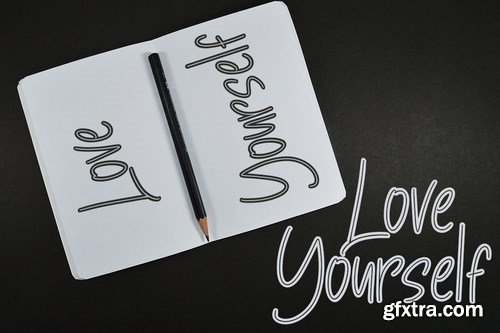 Love
Yourself
Love
Yourself
gfxtra.com